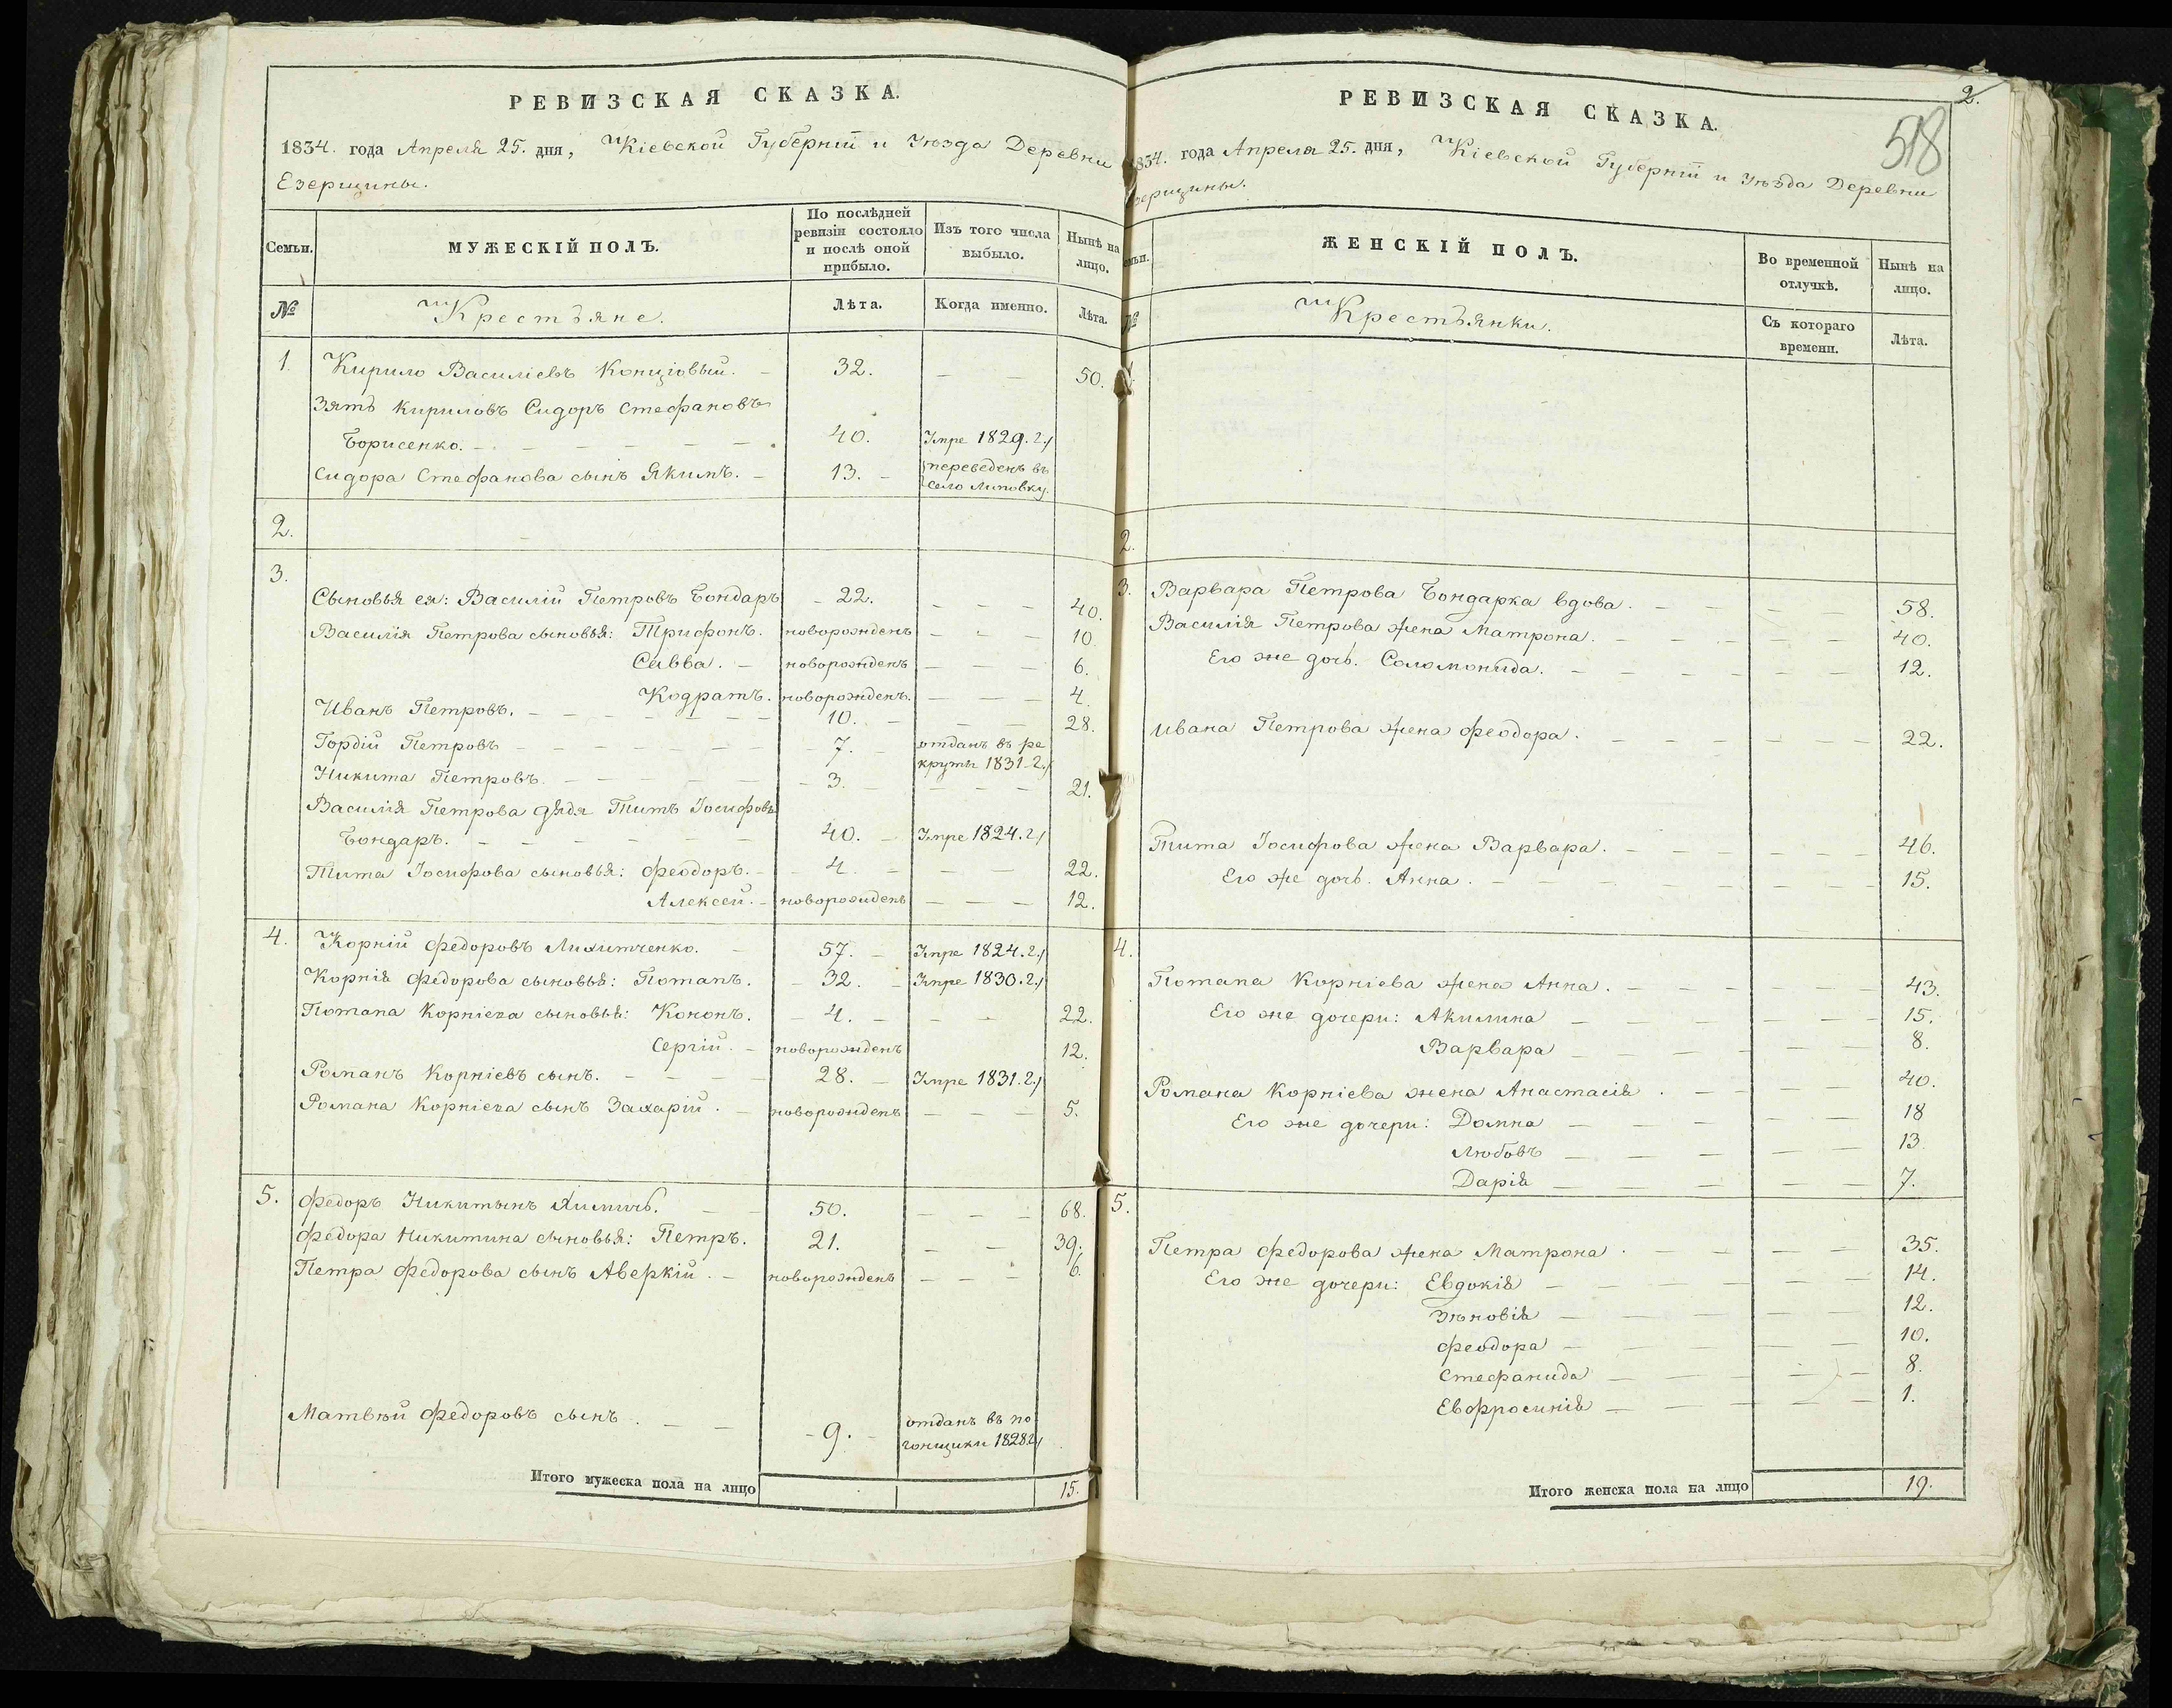 РЕВИЗСКАЯ СКАЗКА.
1834. года Апреля 25. дня, Кіевской Губерніи и Уѣзда Деревни
Езерщины.
Семьи.
МУЖЕСКІЙ ПОЛЪ.
По послѣдней
ревизіи состояло
и послѣ оной
прибыло.
Изъ того числа
выбыло.
Нынѣ на
лицо.
№
Крестьяне.
Лѣта.
Когда именно.
Лѣта.
1. Кирило Василіевъ 32. — — 50.
Зять Кириловъ Сидоръ Стефановъ
Борисенко. 40. Умре 1829. г.
Сидора Стефанова сынъ Якимъ. 13. переведенъ въ
село Липовку.
2.
3.
Сыновья ея: Василій Петровъ Бондаръ 22. — — — 40.
Василія Петрова сыновья: Трифонъ. новорожденъ — — — 10.
Савва. новорожденъ — — — 6.
Кодратъ. новорожденъ. — — — 4.
Иванъ Петровъ. 10. — — 28.
Гордій Петровъ 7. отданъ въ ре
круты 1831 г.
Никита Петровъ. 3. — — — 21.
Василія Петрова дядя Титъ Іосифовъ
Бондаръ. 40. Умре 1824. г.
Тита Іосифова сыновья: Феодоръ. 4. — — 22.
Алексей. новорожденъ — — — 12.
4. Корній Федоровъ 57. Умре 1824. г.
Корнія Федорова сыновья: Потапъ. 32. Умре 1830. г.
Потапа Корніева сыновья: Кононъ. 4. — — 22.
Сергій. новорожденъ 12.
Романъ Корніевъ сынъ. 28. Умре 1831. г.
Романа Корніева сынъ Захарій. новорожденъ — — — 5.
5. Федоръ Никитынъ Химичь. 50. — — — 68.
Федора Никитина сыновья: Петръ. 21. — — 39.
Петра Федорова сынъ Аверкій. новорожденъ — — — 6.
Матвѣй Федоровъ сынъ. 9. отданъ въ по
гонщики 1828 г.
Итого мужеска пола на лицо 15.
2.
518
РЕВИЗСКАЯ СКАЗКА.
1834. года Апреля 25. дня, Кіевской Губерніи и Уѣзда Деревни
зерщины.
ЖЕНСКІЙ ПОЛЪ.
Во временной
отлучкѣ.
Нынѣ на
лицо.
№
Крестьянки.
Съ котораго
времени.
Лѣта.
2.
3. Варвара Петрова Бондарка вдова. 58.
Василія Петрова жена Матрона. 40.
Его же дочь. Соломонида. 12.
Ивана Петрова жена Феодора. 22.
Тита Іосифова жена Варвара. 46.
Его же дочь. Анна. 15.
4.
Потапа Корніева жена Анна. 43.
Его же дочери: Акилина 15.
Варвара 8.
Романа Корніева жена Анастасія. 40.
Его же дочери: Домна 18
Любовъ 13
Дарія 7.
5.
Петра Федорова жена Матрона. 35.
Его же дочери: Евдокія 14.
Зѣновія 12.
Феодора 10.
Стефанида 8.
Евфросинія 1.
Итого женска пола на лицо 19.